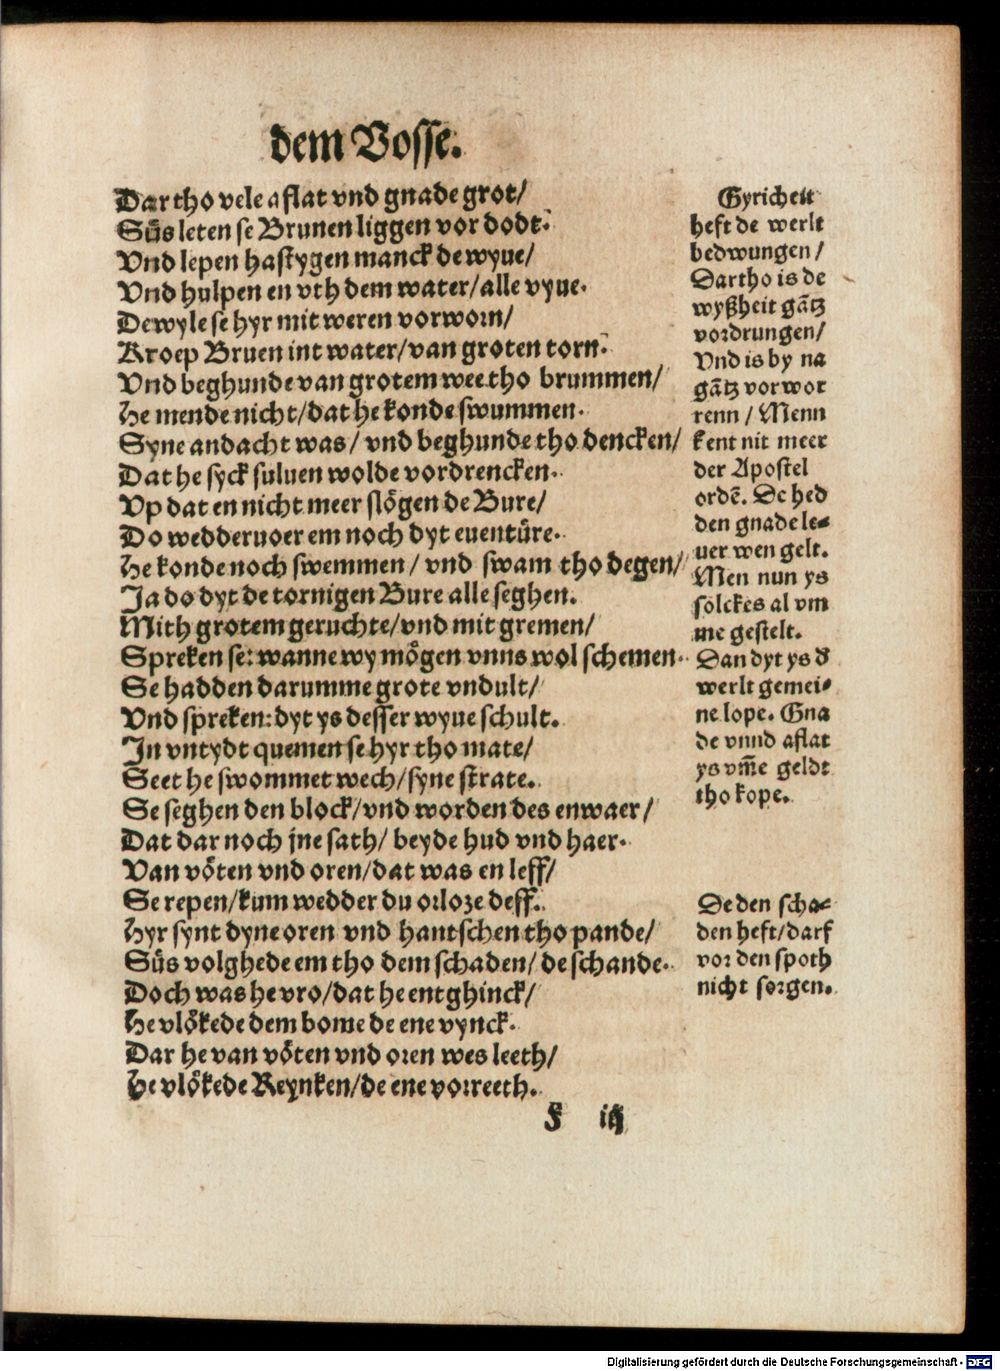 dem Vosse.
Dar tho vele aflat vnd gnade grot/
Süs leten se Brunen liggen vor dodt.
Vnd lepen hastygen manck de wyue/
Vnd hulpen en vth dem water/alle vyue.
De wyle se hyr mit weren vorworn/
Kroep Bruen int water/van groten torn.
Vnd beghunde van grotem wee tho brummen/
He mende nicht/dat he konde swummen.
Syne andacht was/ vnd beghunde tho dencken/
Dat he syck suluen wolde vordrencken.
Vp dat en nicht meer slögen de Bure/
Do weddervoer em noch dyt euentüre.
He konde noch swemmen/ vnd swam tho degen/
Ja do dyt de tornigen Bure alle seghen.
Mith grotem geruchte/vnd mit gremen/
Spreken se: wanne wy mögen vnns wol schemen.
Se hadden darumme grote vndult/
Vnd spreken: dyt ys desser wyue schult.
In vntydt quemen se hyr tho mate/
Seet he swommet wech/syne strate.
Se seghen den block/vnd worden des enwaer/
Dat dar noch jne sath/ beyde hud vnd haer.
Van vöten vnd oren/dat was en leff/
Se repen/kum wedder du orloze deff.
Hyr synt dyne oren vnd hantschen tho pande/
Süs volghede em tho dem schaden/ de schande.
Doch was he vro/dat he entghinck/
He vlökede dem bome de ene vynck.
Dar he van vöten vnd oren wes leeth/
He vlökede Reynken/de ene vorreeth.
Gyricheit
heft de werlt
bedwungen/
Dartho is de
wyßheit gātz
vordrungen/
Vnd is by na
gātz vorwor
renn/ Menn
kent nit meer
der Apostel
ordē. De hed
den gnade le-
uer wen gelt.
Men nun ys
solckes al vm
me gestelt.
Dan dyt ys d
werlt gemei-
ne lope. Gna
de vnnd aflat
ys vm̄e geldt
tho kope.
De den scha-
den heft/darf
vor den spoth
nicht sorgen.
F iij
Digitalisierung gefördert durch die Deutsche Forschungsgemeinschaft - DFG